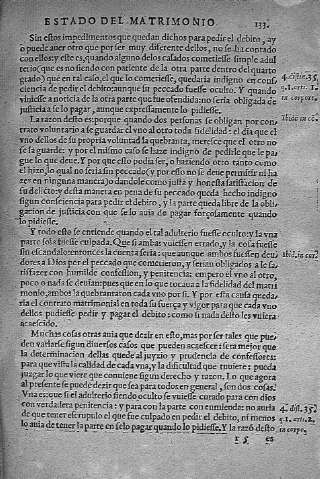 ESTADO DEL MATRIMONIO. 133.
Sin estos impedimentos que quedan dichos para pedir el debito, ay
o puede auer otro que por ser muy diferente dellos, no se ha contado
con ellos: y este es, quando alguno delos casados cometiesse simple adul
terio (que es no siendo con pariente de la otra parte dentro del quarto
grado) que en tal caso, el que lo cometiesse, quedaria indigno en cons
ciencia de pedir el debito: aunque su peccado fuesse oculto. Y quando
viniesse a noticia de la otra parte que fue ofendida no seria obligada de
justicia a se lo pagar, aunque expressamente lo pidiesse.
La razon desto es: porque quando dos personas se obligan por con-
trato voluntario a se guardar el vno al otro toda fidelidad: el dia que el
vno dellos de su propria voluntad la quebranta, merece que el otro no
se la guarde: y por el mismo caso se haze indigno de pedir le que le pa-
gue lo que deue. Y por que esto podia ser, o haziendo otro tanto como
el hizo, lo qual no seria sin peccado: y por esto no se deue permitir ni ha
zer en ninguna manera; o dandole como justa y honesta satisfacion de
su delicto: y desta manera en pena de su peccado queda hecho indigno
segun consciencia para pedir el debito, y la parte queda libre de la obli-
gacion de justicia con que se lo auia de pagar forçosamente quando
lo pidiesse.
Y todo esto se entiende quando el tal adulterio fuesse oculto: y la vna
parte sola fuesse culpada. Que si ambas vuiessen errado, y la cosa fuesse
sin escandalo: entonces la cuenta seria: que aunque ambos fuessen deu-
dores a Dios por el peccado que cometieron, y serian obligados a le sa-
tisfazer con humilde confession, y penitencia: empero el vno al otro,
poco o nada se deuian: pues que en lo que tocaua a la fidelidad del matri
monio, ambos la quebrantaron cada vno por si. Y por esta causa queda-
ria el contrato matrimonial en toda su fuerça y vigor: para que cada vno
dellos pudiesse pedir y pagar el debito: como si nada desto les vuiera
acaescido.
Muchas cosas otras auia que dezir en esto, mas por ser tales que pue-
den variarse segun diuersos casos que pueden acaescer: sera mejor que
la determinacion dellas quede al juyzio y prudencia de confessores:
para que vista la calidad de cada vna, y la dificultad que tuuiere: pueda
juzgar lo que viere que conuiene segun derecho y razon. Lo que agora
al presente se puede dezir que sea para todos en general, son dos cosas.
Vna es: que si el adulterio siendo oculto se vuiesse curado para con dios
con verdadera penitencia: y para con la parte con enmienda: no auria
de que tener escrupulo el que fue culpado en pedir el debito, ni menos
lo auia de tener la parte en selo pagar quando lo pidiesse. Y la razõ desto
4. dist. 35.
q. 1. arti. 1.
in corpore.
Ibide in cõ.
ibi. in cor.
4. dist. 35.
q. 1. arti. 2.
in corpo.